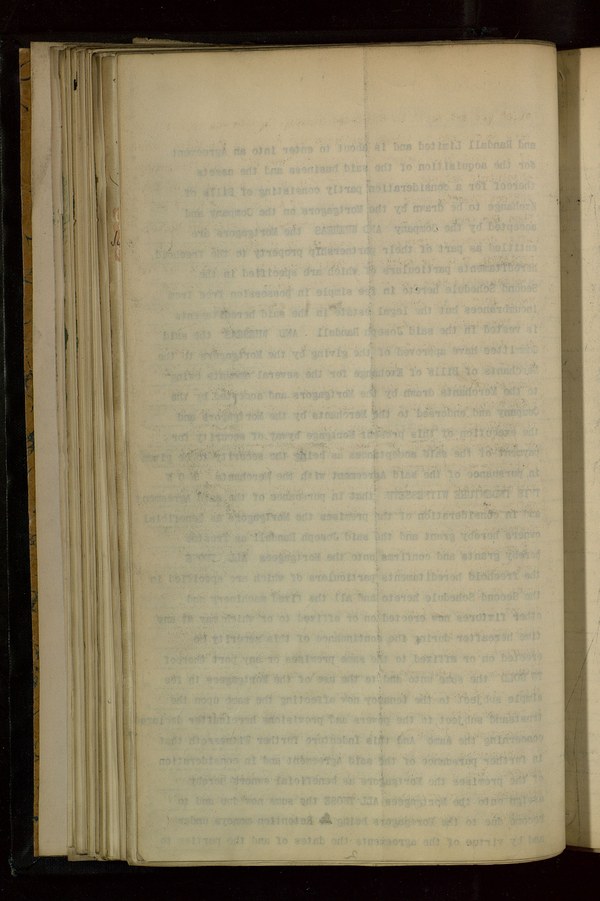 and Randall Limited and is about to enter into an agreement
for the acquisition of the said business and the assets
thereof for a consideration partly consisting of Bills of
Exchange to be drawn by the Mortgagors on the Company and
accepted by the Company AND WHEREAS the Mortgagors are
entitled as part of their partnership property to the freehold
hereditaments particulars of which are specified in the
Second Schedule hereto in fee simple in possession free from
incumbrances but the legal estate in the said hereditaments
is vested in the said Joseph Randall AND WHEREAS the said
have approved of the giving by the Mortgagors to the
Merchants of Bills of Exchange for the several amounts
to the Merchants drawn by the Mortgagors and accepted by the
Company and endorsed to the Merchants by the Mortgagors and
the execution of this present Mortgage by way of security for
payment of the said acceptances as being the security to be given
in pursuance of the said Agreement with the Merchants NOW
THIS INDENTURE WITNESSETH that in pursuance of the said agreement
and in consideration of the premises the Mortgagors as beneficial
owners hereby grant and the said Joseph Randall as Trustee
hereby grants and confirms unto the Mortgagees ALL THOSE
the freehold hereditaments particulars of which are specified in
the Second Schedule hereto and all the fixed machinery and
other fixtures now erected on or affixed to or which may at any
time hereafter during the continuance of this security be
erected on or affixed to the same premises or any part thereof
TO HOLD the same unto and to the use of the Mortgagees in fee
simple subject to the tenancy now affecting the same upon the
trusts and subject to the powers and provisions hereinafter declared
concerning the same And this Indenture further Witnesseth that
in further pursuance of the said Agreement and in consideration
of the premises the Mortgagors as beneficial owners hereby
assign unto the Mortgagees ALL THOSE the sums now due and to
become due to the Mortgagors being
and by virtue of the agreements the dates of and the parties to